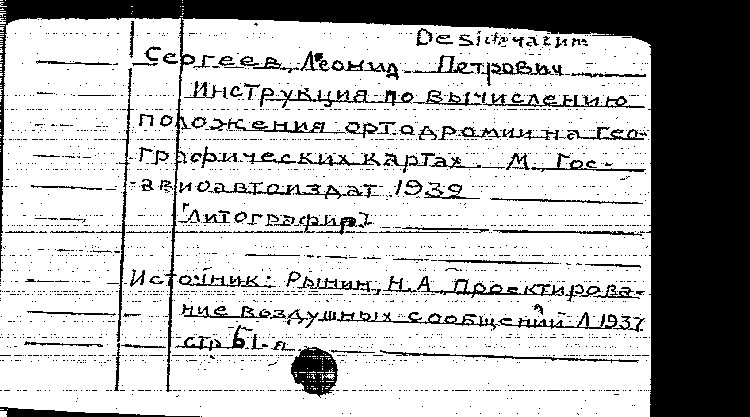 Desideratum
Сергеев, Леонид Петрович
Инструкция по вычислению
положения ортодромии на гео-
графических картах. М., Гос-
авиоавтоиздат 1939
[Литографир.]
Источник: Рынин, Н.А. Проектирова-
ние воздушных сообщений Л 1937
стр 61-я